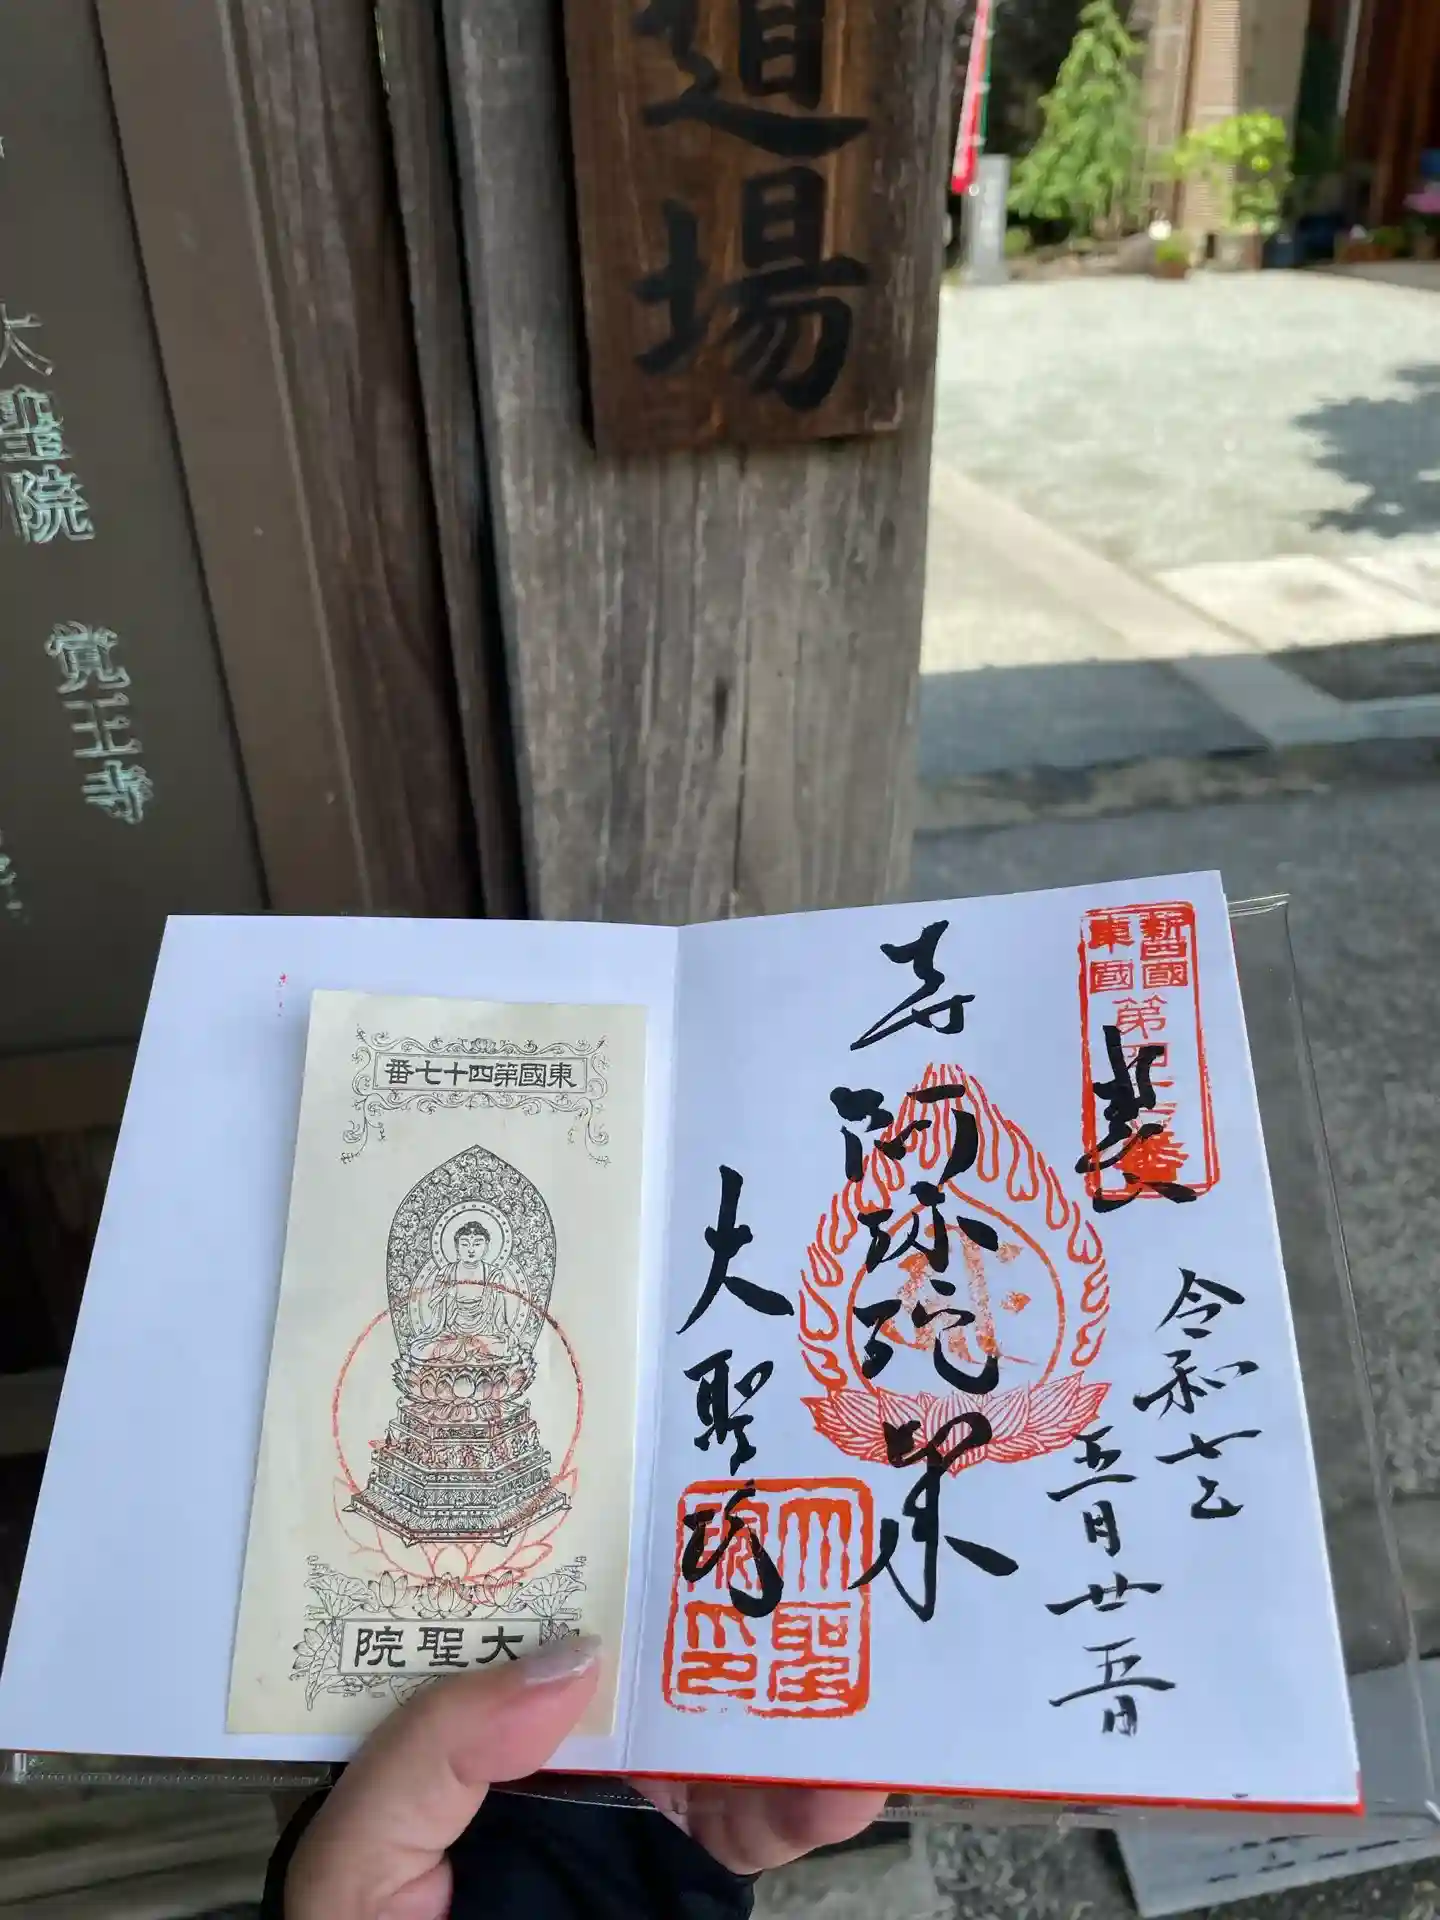 道場
大聖院 覚王寺
東國第四十七番
大聖院
新四國
東國
第四
番
奉
令和七乙
五月廿五日
阿弥陀如来
大聖院
大聖
院印